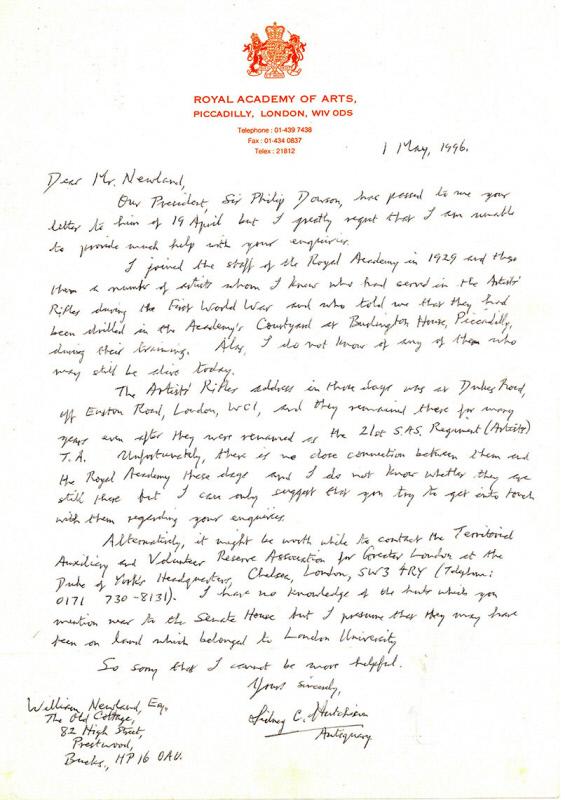 ROYAL ACADEMY OF ARTS,
PICCADILLY, LONDON, W1V 0DS
Telephone : 01-439 7438
Fax : 01-434 0837
Telex : 21812
1 May, 1996.
Dear Mr. Newland,
Our President, Sir Philip Dowson, has passed to me your
letter to him of 19 April but I greatly regret that I am unable
to provide much help with your enquiries.
I joined the staff of the Royal Academy in 1929 and there
were a number of artists whom I knew who had served in the Artists'
Rifles during the First World War and who told me that they had
been drilled in the Academy's Courtyard at Burlington House, Piccadilly,
during their training. Alas, I do not know of any of them who
may still be alive today.
The Artists' Rifles address in those days was at Dukes Road,
off Euston Road, London, WC1, and they remained there for many
years even after they were renamed as the 21st S.A.S. Regiment (Artists)
T.A. Unfortunately, there is no close connection between them and
the Royal Academy these days and I do not know whether they are
still there but I can only suggest that you try to get into touch
with them regarding your enquiries.
Alternatively, it might be worth while to contact the Territorial
Auxiliary and Volunteer Reserve Association for Greater London at the
Duke of York's Headquarters, Chelsea, London, SW3 4RY (Telephone:
0171 730-8131). I have no knowledge of the huts which you
mention near to the Senate House but I presume that they may have
been on land which belonged to London University
So sorry that I cannot be more helpful.
Yours sincerely,
Sidney C. Hutchison
Antiquary
William Newland, Esq.
The Old Cottage,
82 High Street,
Prestwood,
Bucks., HP16